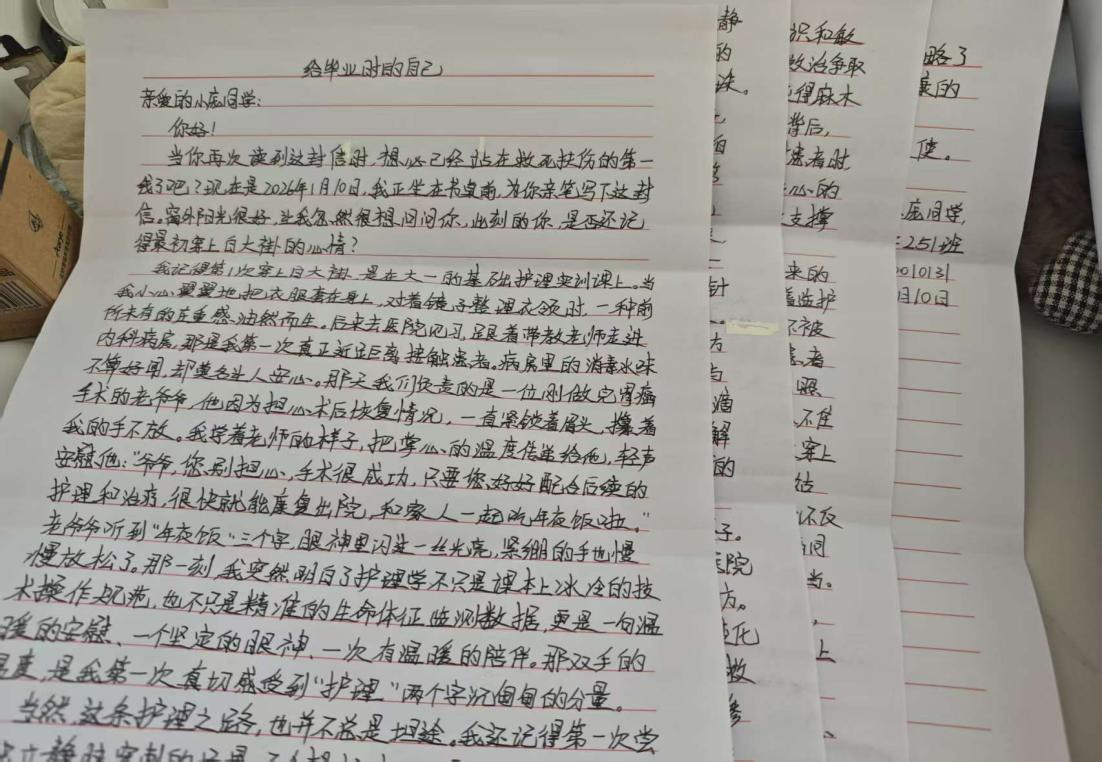 给毕业时的自己
亲爱的小庞同学：
你好！
当你再次读到这封信时，想必已经站在救死扶伤的第一
线了吧？现在是2026年1月10日，我正坐在书桌前，为你亲笔写下这封
信。窗外阳光很好，让我忽然很想问问你，此刻的你，是否还记
得最初穿上白大褂的心情？
我记得第1次穿上白大褂，是在大一的基础护理实训课上。当
我小心翼翼地把衣服套在身上，对着镜子整理衣领时，一种前
所未有的庄重感油然而生。后来去医院见习，跟着带教老师走进
内科病房，那是我第一次真正近距离接触患者。病房里的消毒水味
不算好闻，却莫名让人安心。那天我们负责的是一位刚做完胃癌
手术的老爷爷，他因为担心术后恢复情况，一直紧锁着眉头，攥着
我的手不放。我学着老师的样子，把掌心的温度传递给他，轻声
安慰他：“爷爷，您别担心，手术很成功，只要您好好配合后续的
护理和治疗，很快就能康复出院，和家人一起吃年夜饭啦。”
老爷爷听到“年夜饭”三个字，眼神里闪过一丝光亮，紧绷的手也慢
慢放松了。那一刻，我突然明白了护理学不只是课本上冰冷的技
术操作规范，也不只是精准的生命体征监测数据，更是一句温
暖的安慰、一个坚定的眼神、一次有温暖的陪伴。那双手的
温度，是我第一次真切感受到“护理”两个字沉甸甸的分量。
当然，这条护理之路，也并不总是坦途。我还记得第一次尝
静脉穿刺的
静
的
针
方
与
滴
解
的
子。
医院
方。
化
收
识和敏
救治争取
得麻木
背后，
患者时
心的
支撑
来的
监护
不被
患者
照
不住
穿上
站
不仅
同
当。
上
略了
康的
使。
庞同学，
251班
0010131
月10日